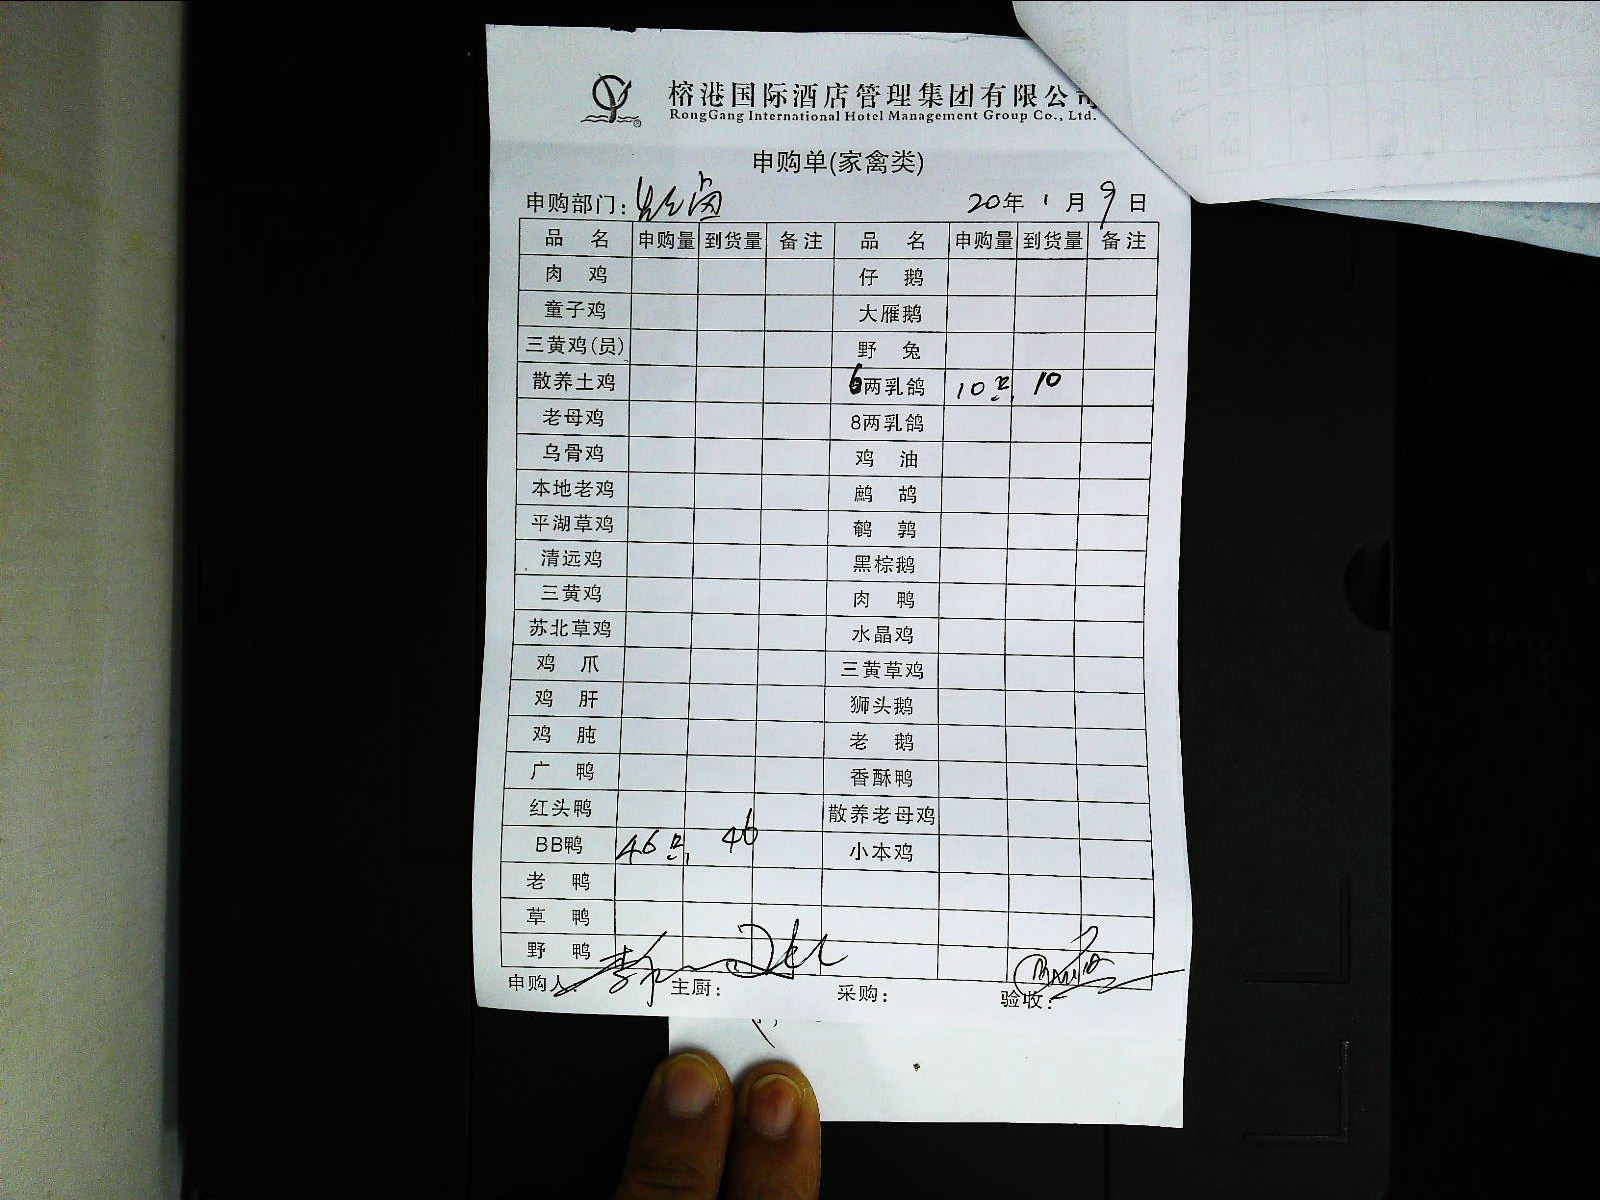 榕港国际酒店管理集团有限公司
RongGang International Hotel Management Group Co., Ltd.
申购单(家禽类)
申购部门: 20年 1月9日
品名 申购量 到货量 备注 品名 申购量 到货量 备注
肉鸡 仔鹅
童子鸡 大雁鹅
三黄鸡(员) 野兔
散养土鸡 6两乳鸽 10只 10
老母鸡 8两乳鸽
乌骨鸡 鸡油
本地老鸡 鹧鸪
平湖草鸡 鹌鹑
清远鸡 黑棕鹅
三黄鸡 肉鸭
苏北草鸡 水晶鸡
鸡爪 三黄草鸡
鸡肝 狮头鹅
鸡肫 老鹅
广鸭 香酥鸭
红头鸭 散养老母鸡
BB鸭 46只 46 小本鸡
老鸭
草鸭
野鸭
申购人: 主厨: 采购: 验收: